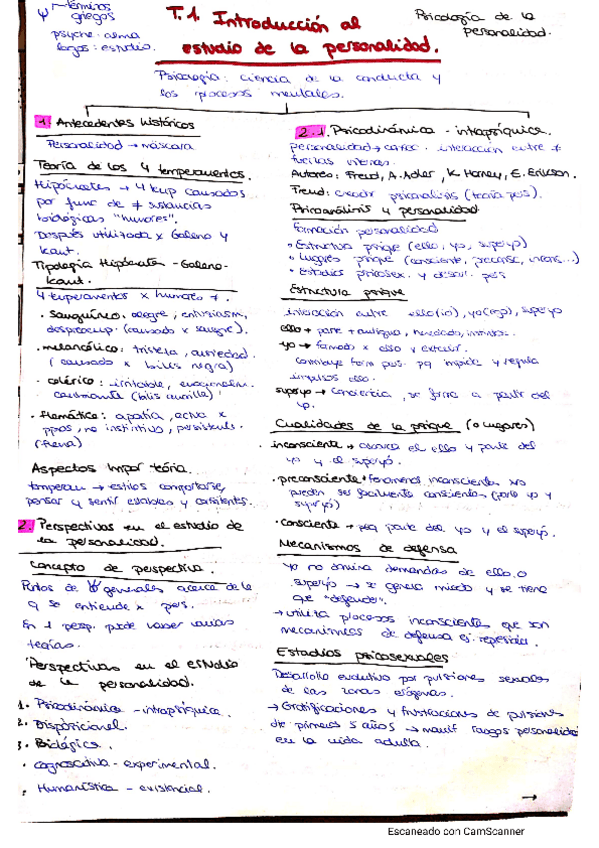 ψ → términos
griegos
psyche: alma
logos: estudio.
T.1. Introducción al
estudio de la personalidad.
Psicología de la
personalidad.
Psicología: ciencia de la conducta y
los procesos mentales.
1. Antecedentes históricos
Personalidad → máscara
Teoría de los 4 temperamentos.
Hipócrates → 4 temp causados
por func de ≠ sustancias
biológicas "humores".
Después utilizada x Galeno y
Kant.
Tipología Hipócrates - Galeno -
Kant.
4 temperamentos x humores ≠.
· sanguíneo: alegre, entusiasm,
despreocup. (causado x sangre).
· melancólico: tristeza, ansiedad.
(causado x bilis negra)
· colérico: irritable,
(bilis amarilla)
· flemático: apatía, activ x
ppos, no instintivo, persistente.
(flema)
Aspectos impor teoría.
temperam → estilos comportarse,
pensar y sentir estables y consistentes.
2. Perspectivas en el estudio de
la personalidad.
Concepto de perspectiva.
Puntos de generales acerca de lo
q se entiende x pers.
En 1 persp. puede haber varias
teorías.
Perspectivas en el estudio
de la personalidad.
1. Psicodinámica - intrapsíquica.
2. Disposicional.
3. Biológica.
· Cognoscitiva - experimental.
· Humanística - existencial.
2.1. Psicodinámica - intrapsíquica.
personalidad → interacción entre ≠
fuerzas internas.
Autores: Freud, A. Adler, K. Horney, E. Erikson.
Freud: creador psicoanálisis (teoría pers).
Psicoanálisis y personalidad
Formación personalidad
· Estructura psique (ello, yo, superyó)
· Lugares psique (consciente, preconsc, incons...)
· Estadios psicosex. y desarr. pers
Estructura psique
interacción entre ello (id), yo (ego), superyo
ello → parte + antigua, heredado, instintos.
yo → formado x ello y exterior.
Contribuye form pers. pq impide y regula
impulsos ello.
superyo → conciencia, se forma a partir del
yo.
Cualidades de la psique (o lugares)
inconsciente → abarca el ello y parte del
yo y el superyó.
· preconsciente: fenómenos inconscientes xo
pueden ser fácilmente conscientes (parte yo y
superyó)
· consciente → peq parte del yo y el superyó.
Mecanismos de defensa
Yo no domina demandas de ello o
superyó → se genera miedo y se tiene
que "defender".
→ utiliza procesos inconscientes que son
mecanismos de defensa ej. represión.
Estadios psicosexuales
Desarrollo evolutivo por pulsiones sexuales
de las zonas erógenas.
→ Gratificaciones y frustraciones de pulsiones
de primeros 5 años → manif rasgos personalidad
en la vida adulta.
→
Escaneado con CamScanner